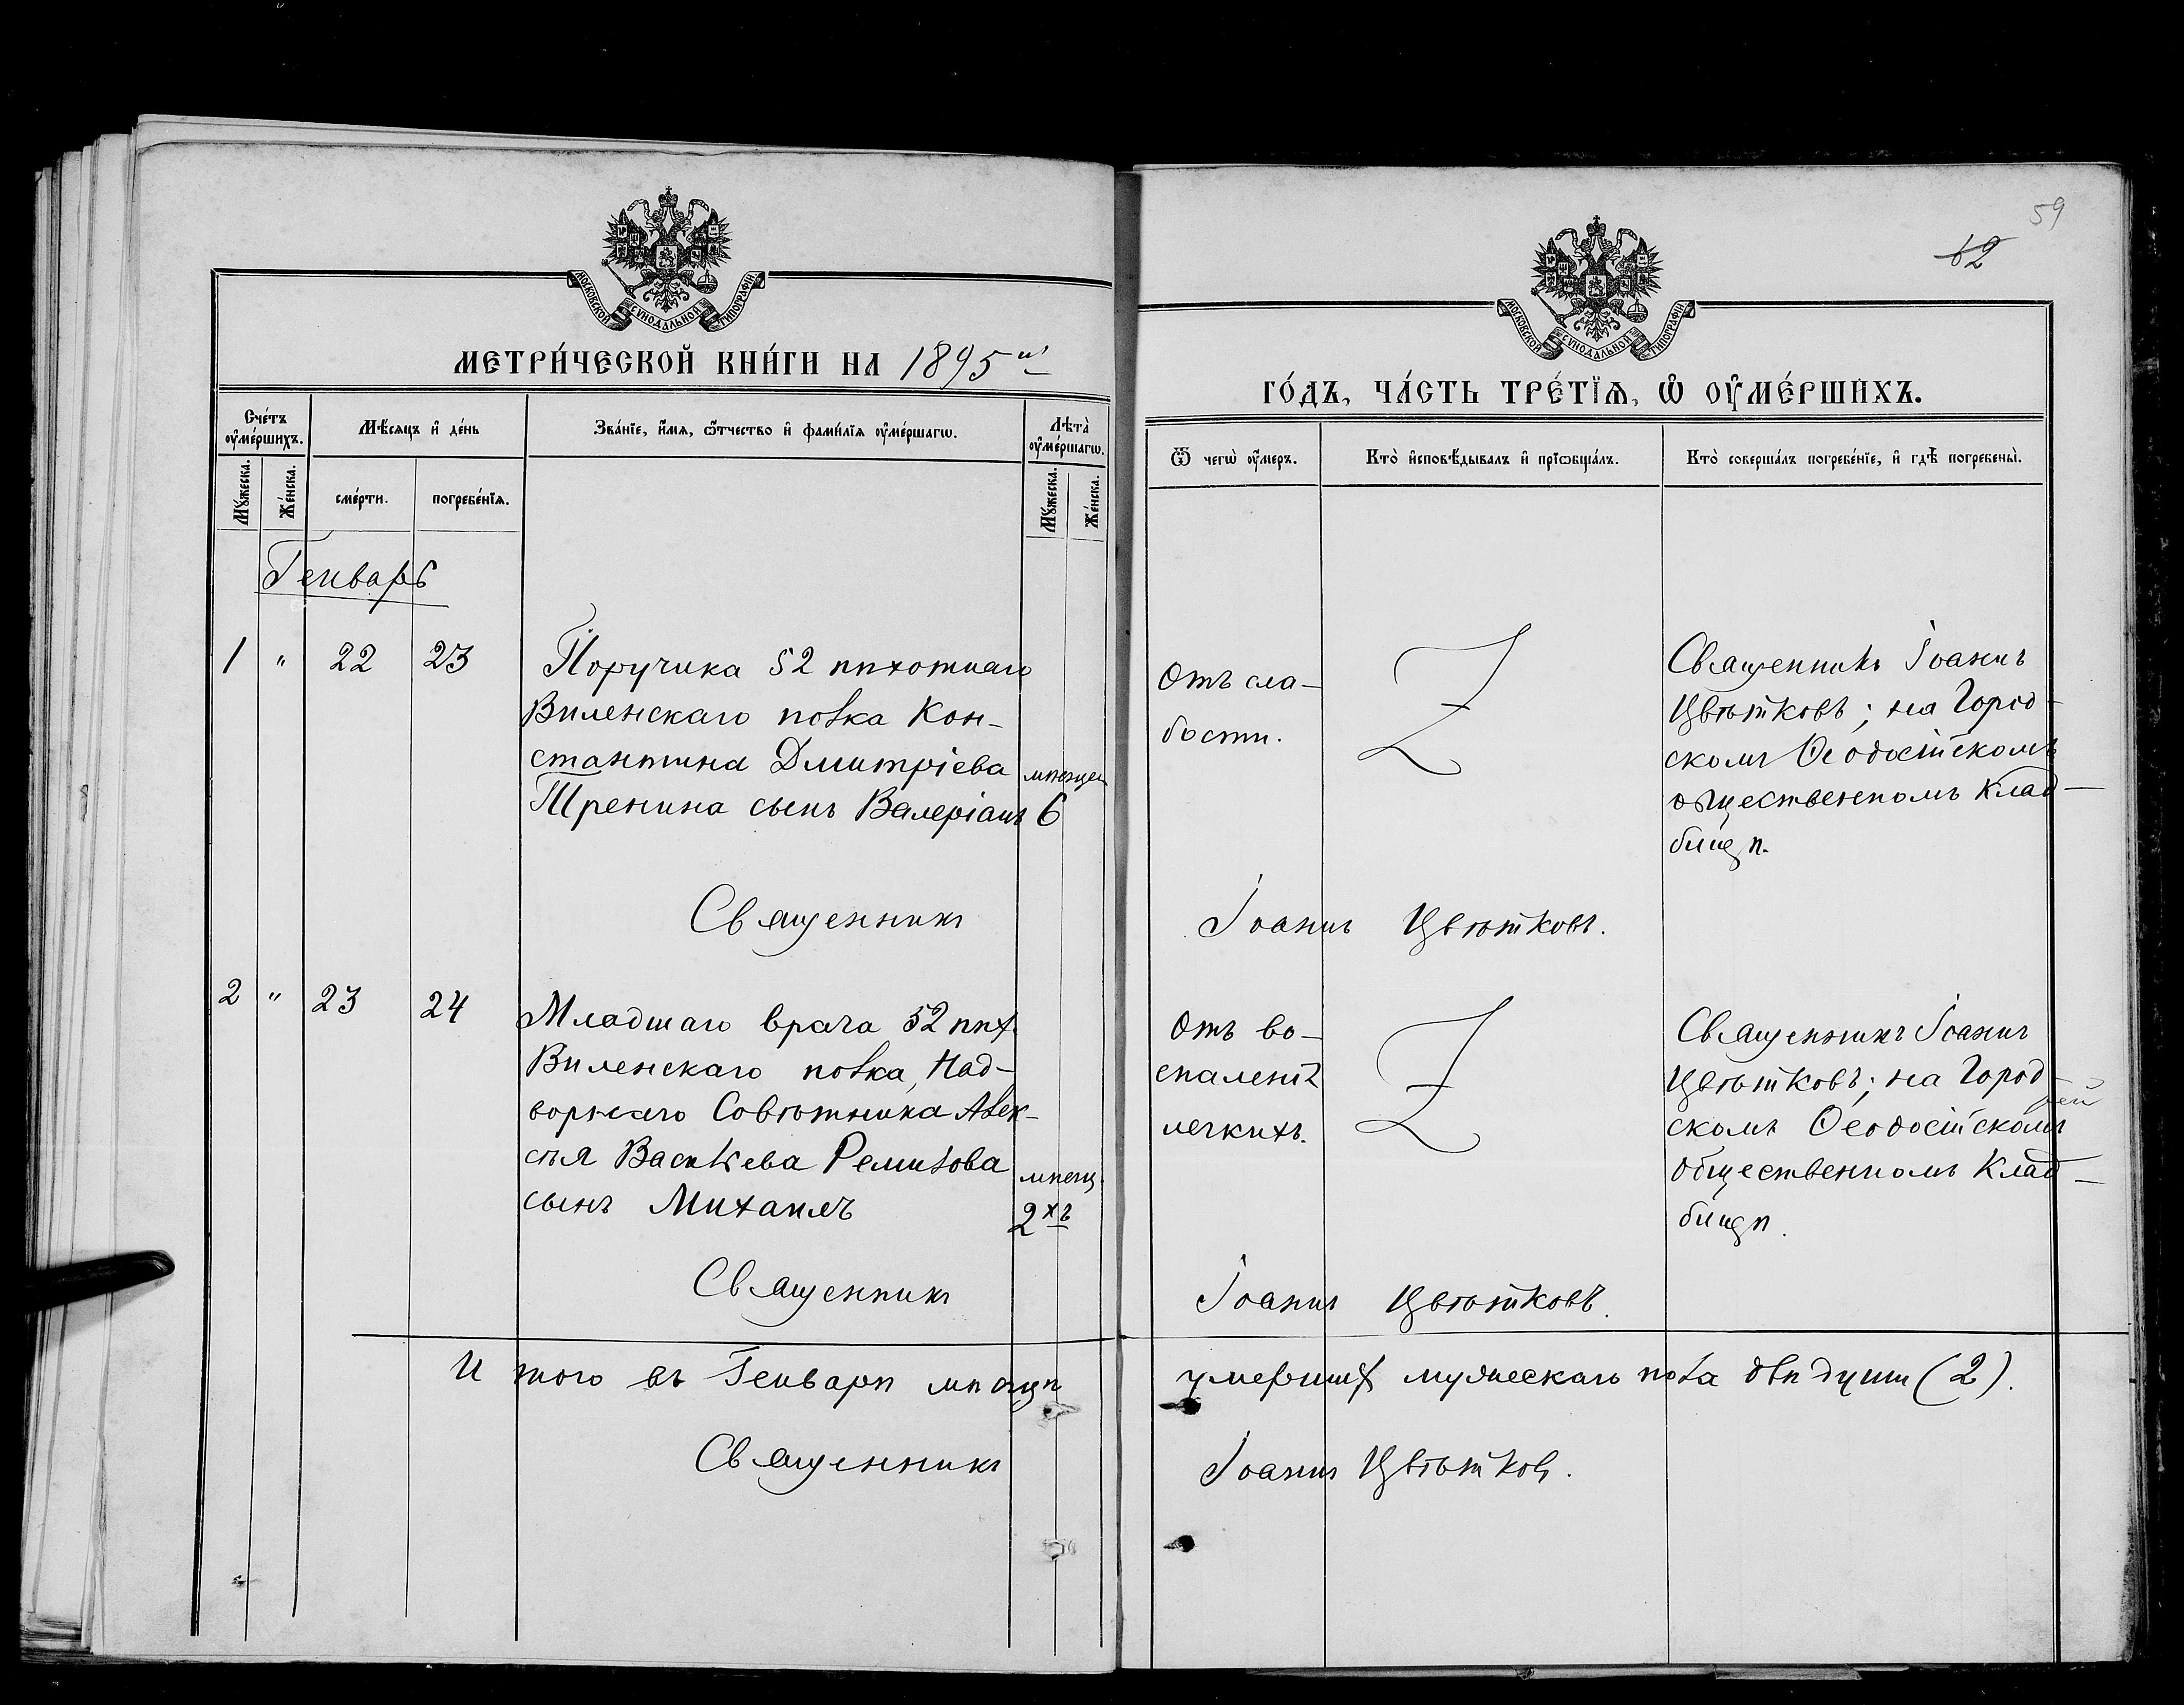 59
62
МОСКОВСКОЙ СѴНОДАЛЬНОЙ ТИПОГРАФІИ
МОСКОВСКОЙ СѴНОДАЛЬНОЙ ТИПОГРАФІИ
МЕТРИ́ЧЕСКОЙ КНИ́ГИ НА 1895й
ГО́ДЪ, ЧА́СТЬ ТРЕ́ТЇѦ, Ѡ҆ ОУ҆МЕ́РШИХЪ.
Сче́тъ оу҆ме́ршихъ.
Мꙋ́жеска.
Же́нска.
Мѣ́сяцъ и҆ де́нь
сме́рти.
погребе́нїѧ.
Зва́нїе, и҆́мѧ, ѻ҆́тчество и҆ фами́лїѧ оу҆ме́ршагѡ.
Лѣта̀ оу҆ме́ршагѡ.
Мꙋ́жеска.
Же́нска.
Ѿ чегѡ̀ оу҆́меръ.
Кто̀ и҆сповѣ́дывалъ и҆ прїѡбща́лъ.
Кто̀ соверша́лъ погребе́нїе, и҆ гдѣ̀ погребены̀.
Генварь
1 " 22 23
Поручика 52 пѣхотнаго
Виленскаго полка Кон-
стантина Дмитріева
Шренина сынъ Валеріанъ
мѣсяцев
6
Отъ сла-
бости.
Священникъ Іоаннъ
Цвѣтковъ; на Город-
скомъ Ѳеодосійскомъ
общественномъ клад-
бищѣ.
Священникъ Іоаннъ Цвѣтковъ.
2 " 23 24
Младшаго врача 52 пѣх.
Виленскаго полка, Над-
ворнаго Совѣтника Алек-
сѣя Васильева Ремизова
сынъ Михаилъ
мѣсяц.
2хъ
Отъ во-
спаленія
легкихъ.
Священникъ Іоаннъ
Цвѣтковъ; на Город-
скомъ Ѳеодосійскомъ
общественномъ клад-
бищѣ.
Священникъ Іоаннъ Цвѣтковъ.
Итого въ Генварѣ мѣсяцѣ умершихъ мужескаго пола двѣ души (2).
Священникъ Іоаннъ Цвѣтковъ.